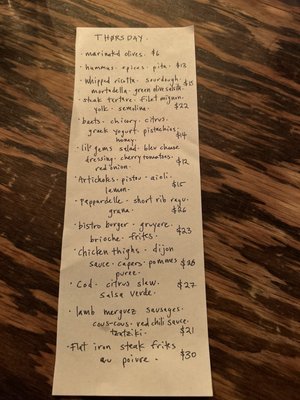 THURSDAY
· marinated olives. $6
· hummus. spices. pita. $13
· Whipped ricotta. sourdough. $15
mortadella. green olive salsa.
· steak tartare. filet mignon.
yolk. semolina. $22
· beets. chicory. citrus.
greek yogurt. pistachios. $14
honey.
· lil' gems salad. blev cheese
dressing. cherry tomatoes. $12
red onion.
· Artichokes. pistou. aioli.
lemon. $15
· Pappardelle. short rib ragu.
grana. $26
· bistro burger. gruyere. $23
brioche. frites.
· Chicken thighs. dijon
sauce. capers. pommes $28
puree.
· Cod. citrus slaw. $27
salsa verde.
· lamb merguez sausages.
cous-cous. red chili sauce. $21
tzatziki.
· Flat iron steak frites $30
au poivre.